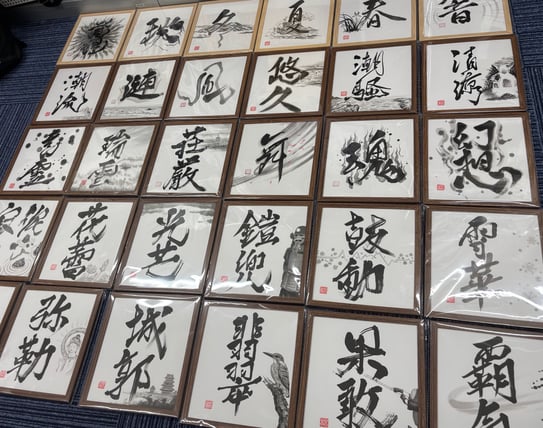 秋
冬
夏
春
音
潮流
漣
風
悠久
潮騒
瑞雲
荘厳
舞
魂
幻想
花蕾
光芒
鎧兜
鼓動
雪華
弥勒
城郭
翡翠
果敢
覇気